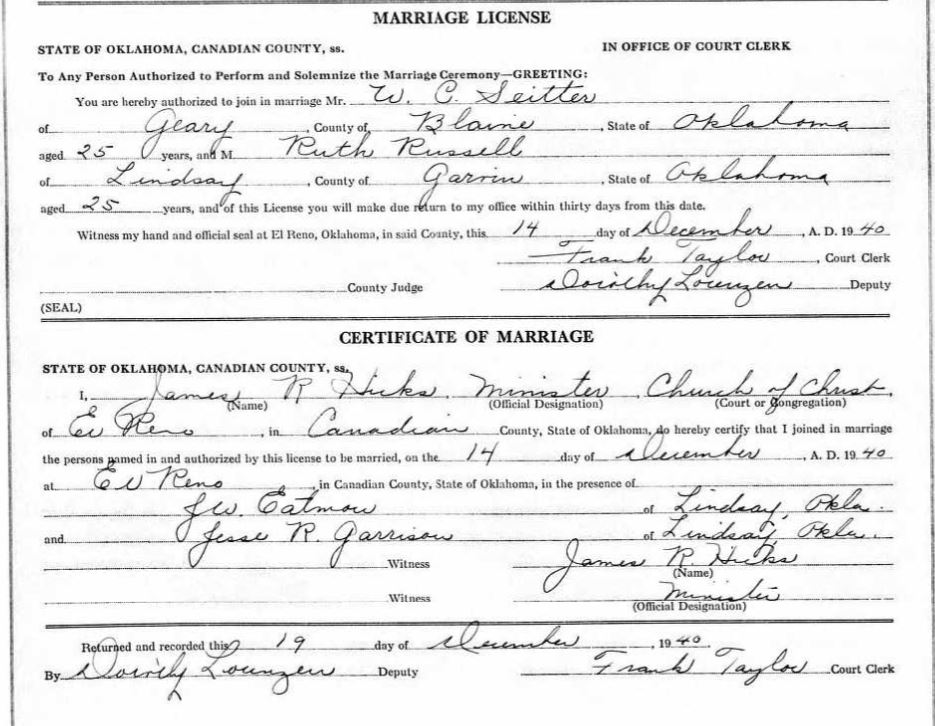 MARRIAGE LICENSE
STATE OF OKLAHOMA, CANADIAN COUNTY, ss. IN OFFICE OF COURT CLERK
To Any Person Authorized to Perform and Solemnize the Marriage Ceremony—GREETING:
You are hereby authorized to join in marriage Mr. W. C. Seitter
of Geary, County of Blaine, State of Oklahoma
aged 25 years, and M Ruth Russell
of Lindsay, County of Garvin, State of Oklahoma
aged 25 years, and of this License you will make due return to my office within thirty days from this date.
Witness my hand and official seal at El Reno, Oklahoma, in said County, this 14 day of December, A. D. 1940
Frank Taylor, Court Clerk
County Judge Dorothy Lorenzen Deputy
(SEAL)
CERTIFICATE OF MARRIAGE
STATE OF OKLAHOMA, CANADIAN COUNTY, ss.
I, James R Hicks, Minister, Church of Christ,
(Name) (Official Designation) (Court or Congregation)
of El Reno, in Canadian County, State of Oklahoma, do hereby certify that I joined in marriage
the persons named in and authorized by this license to be married, on the 14 day of December, A. D. 1940
at El Reno, in Canadian County, State of Oklahoma, in the presence of
J.W. Eatmon of Lindsay, Okla.
and Jesse R. Garrison of Lindsay, Okla.
Witness James R. Hicks
(Name)
Witness Minister
(Official Designation)
Returned and recorded this 19 day of December, 1940
By Dorothy Lorenzen Deputy Frank Taylor Court Clerk